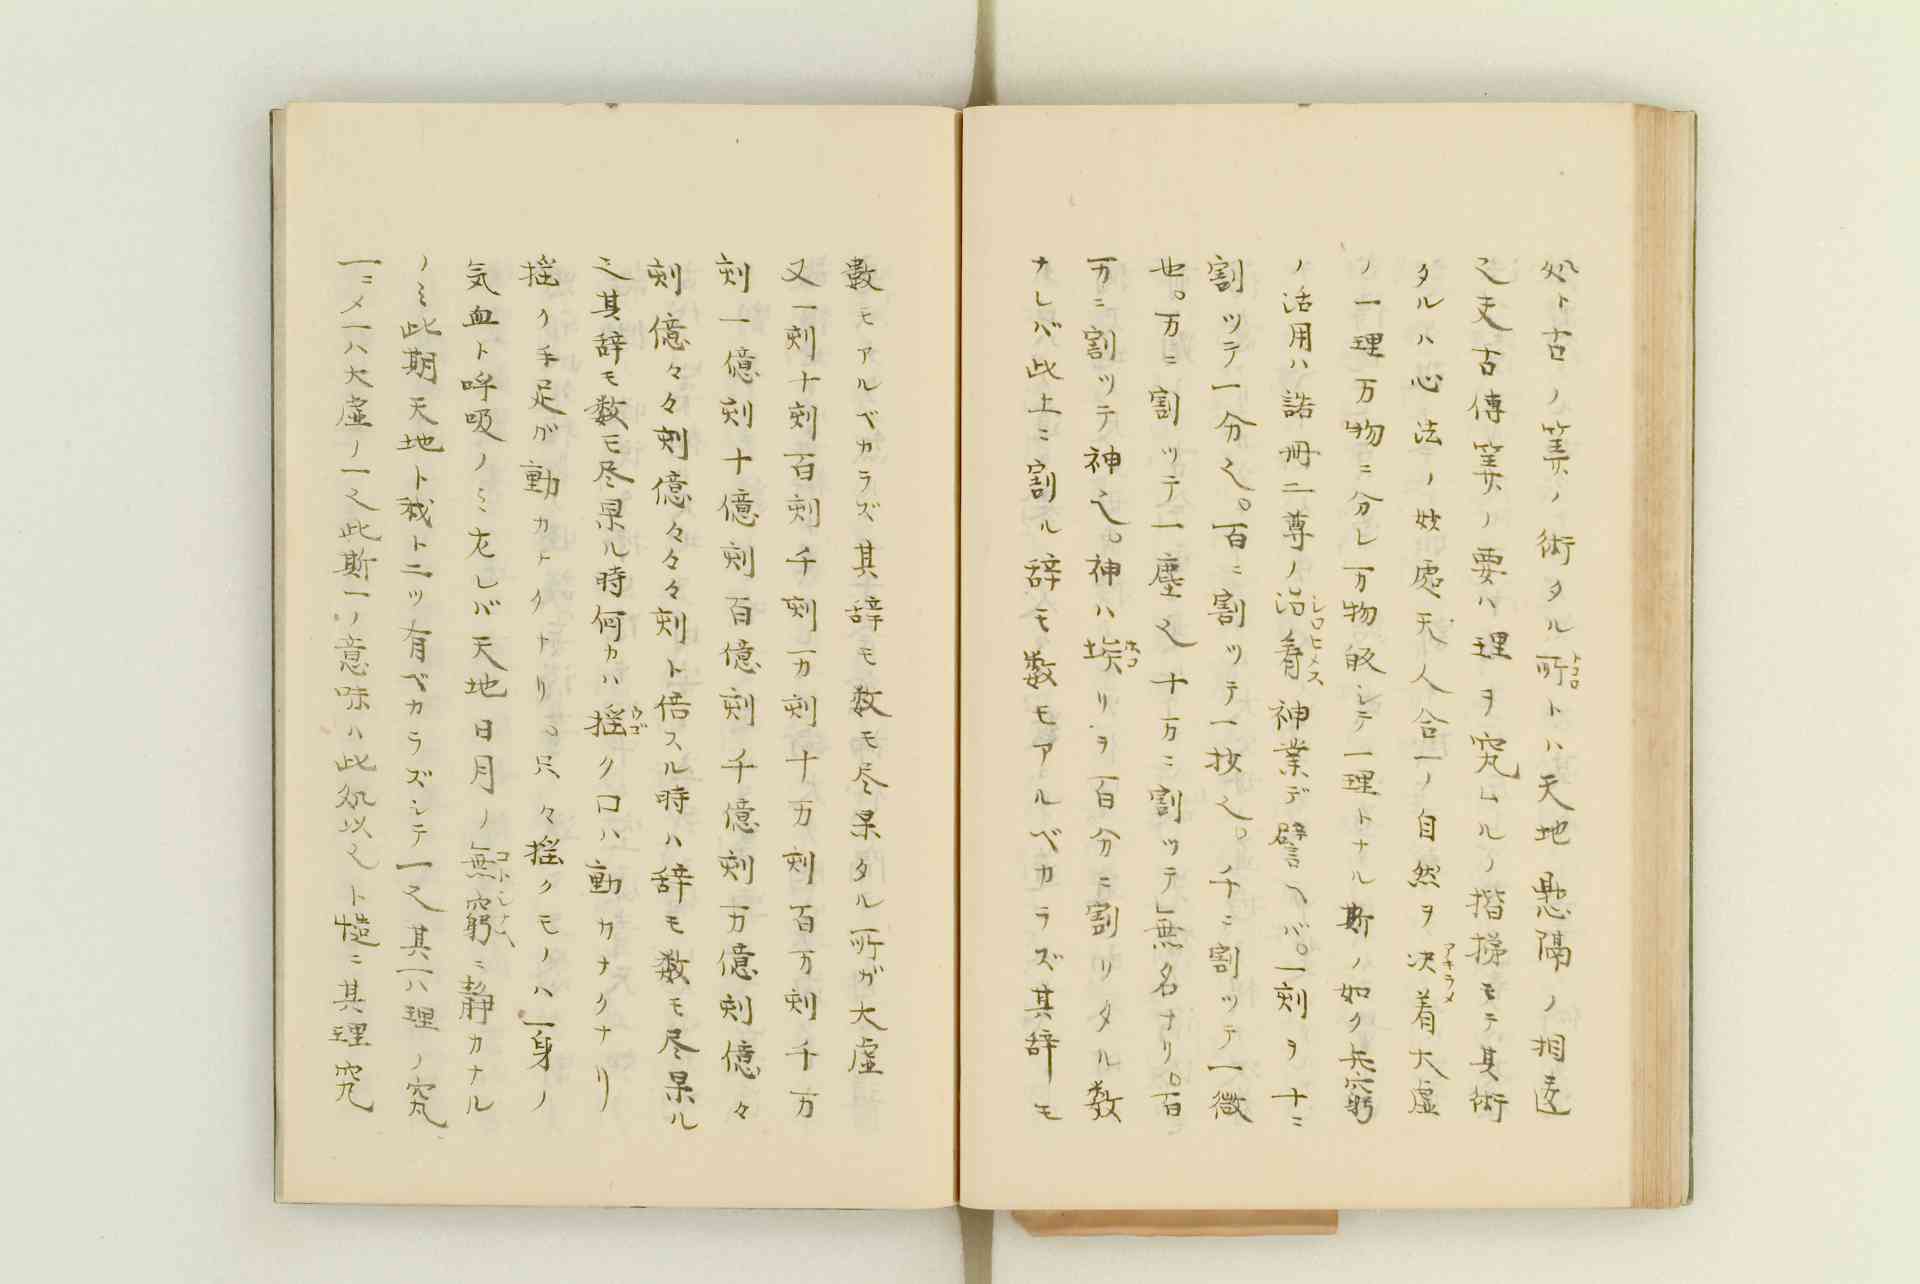 処ト古ノ筭ノ術タル所トハ天地懸隔ノ相違
之夫古傳筭ノ要ハ理ヲ究ムルノ揩梯モテ其術
タルハ心法ノ妙處天人合一ノ自然ヲ決着大虚
ノ一理万物ニ分レ万物皈シテ一理トナル斯ノ如ク無窮
ノ活用ハ諾冊二尊ノ治看神業デ譬ヘバ。一刻ヲ十ニ
割ッテ一分之。百ニ割ッテ一抜之。千ニ割ッテ一微
也。万ニ割ッテ一塵之十万ニ割ッテ無名ナリ。百
万ニ割ッテ神之。神ハ埃リヲ百分ニ割リタル数
ナレバ此上ニ割ル辞モ数モアルベカラズ其辞モ
數モアルベカラズ其辞モ数モ尽果タル所ガ大虚
又一刻十刻百刻千刻万刻十万刻百万刻千万
刻一億刻十億刻百億刻千億刻万億刻億々
刻億々々刻億々々々刻ト倍スル時ハ辞モ数モ尽果ル
之其辞モ数モ尽果ル時何カハ揺ク口ハ動カナクナリ
揺ク手足ガ動カナクナリ。只々揺クモノハ一身ノ
気血ト呼吸ノミ左レバ天地日月ノ無窮ニ静カナル
ノミ此期天地ト我ト二ツ有ベカラズシテ一之其一ハ理ノ究
一ニメ一ハ大虚ノ一之此斯一ノ意味ハ此処以之ト慥ニ其理究